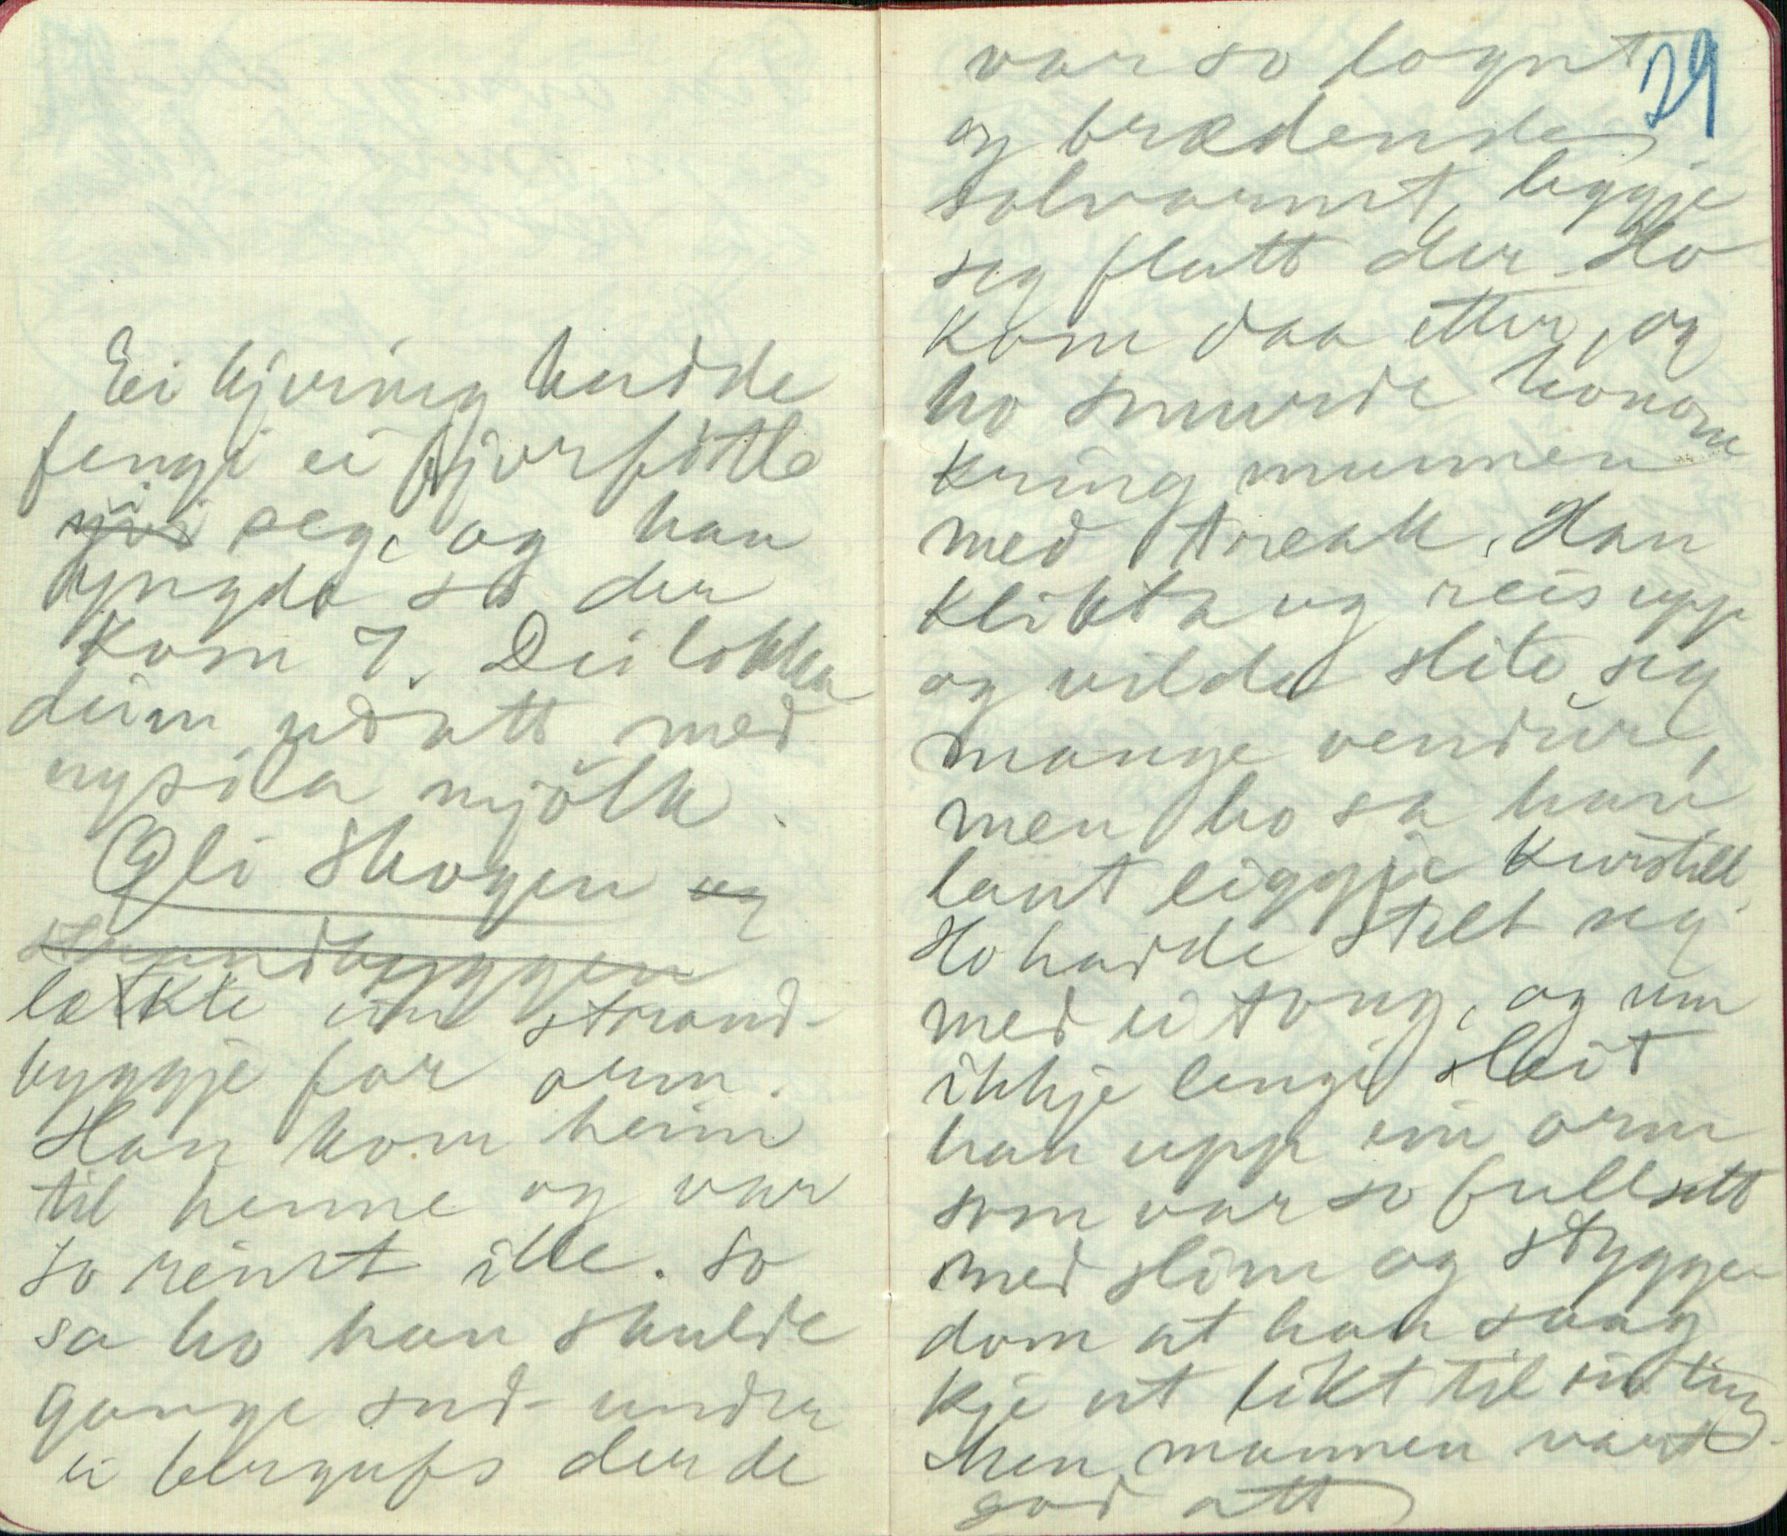 Ei kjering hadde
fengi ei fjorfitle
i seg, og han
yngda so der
kom 7. Dei lokka
deim ut att med
nysila mjølk.
Ali Skogen og
strandbyggen
lækte ein strand-
byggje for orm.
Han kom heim
til henne og var
so reint ille. So
sa ho han skulde
gange sud- under
ei bergufs der de
var so lognt
29
og brædende
solvarmt, leggje
seg flatt der. Ho
kom daa etter, og
ho smurde honom
kring munnen
med treak. Han
klikta og reis upp
og vilde slite seg
mange vendur,
men ho sa han
laut liggje kurstill.
Ho hadde stelt seg
med ei tong, og um
ikkje lengi sleit
han upp ein orm
som var so fullsett
med slim og stygge-
dom at han saag
kje ut likt til nin ting
Men mannen vart
god att